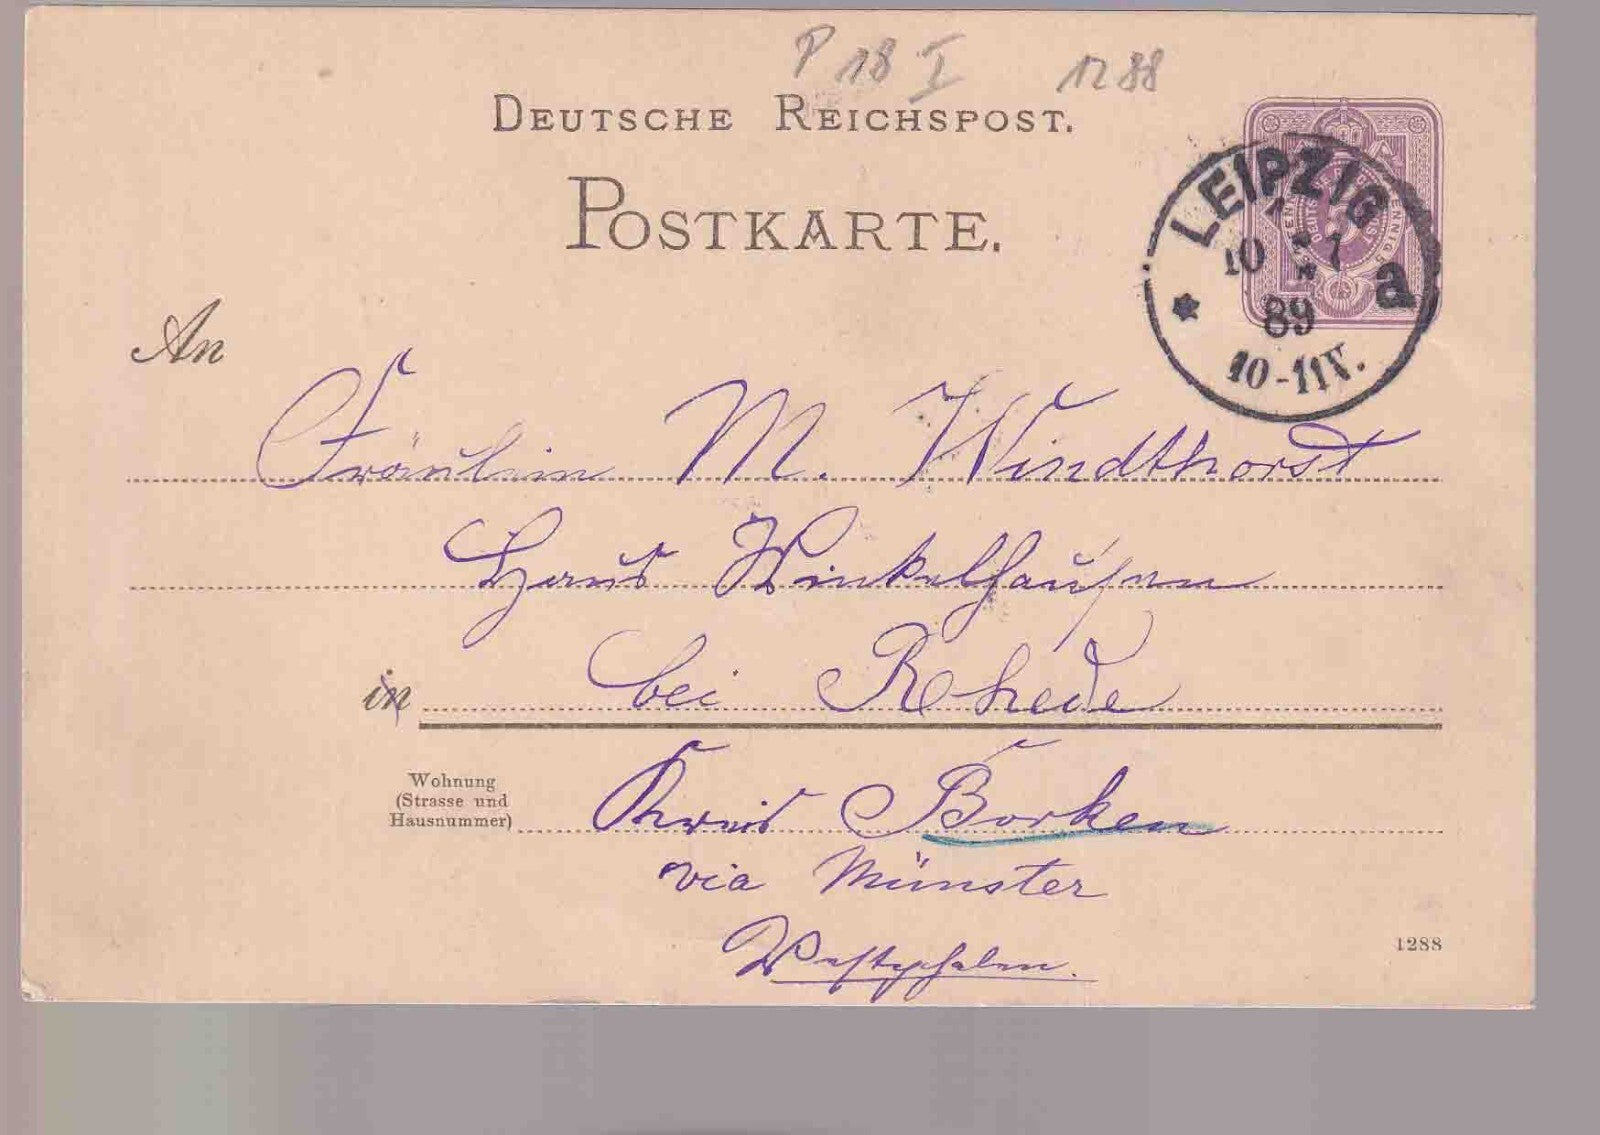 P 18 I 1288
DEUTSCHE REICHSPOST.
POSTKARTE.
LEIPZIG
10 7
a
89
10-11V.
An
Fräulein M. Windthorst
Haus Winkelhausen
in bei Rhede
Wohnung
(Strasse und
Hausnummer)
Kreis Borken
via Münster
Westphalen.
1288